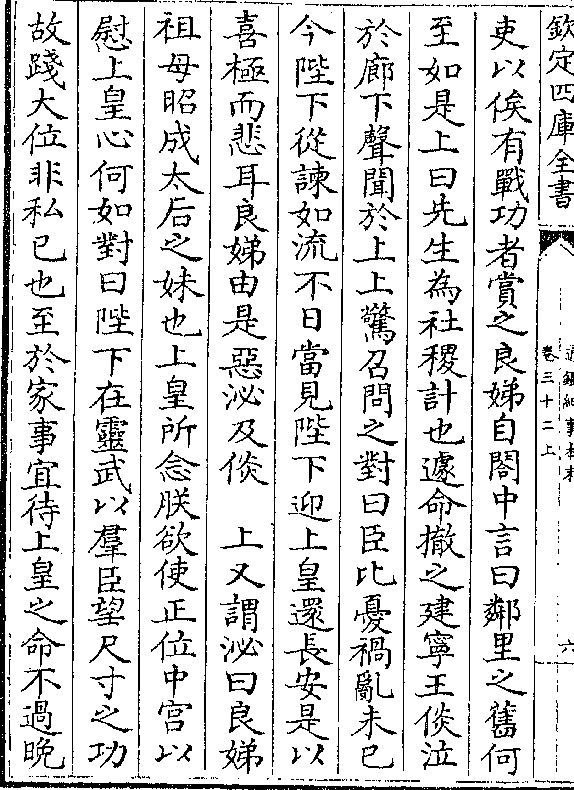 欽定四庫全書
通鑑紀事本末
卷三十二上
六
吏以俟有戰功者賞之良娣自閤中言曰鄰里之舊何
至如是上曰先生為社稷計也遽命撤之建寧王倓泣
於廊下聲聞於上上驚召問之對曰臣比憂禍亂未已
今陛下從諫如流不日當見陛下迎上皇還長安是以
喜極而悲耳良娣由是惡泌及倓　上又謂泌曰良娣
祖母昭成太后之妹也上皇所念朕欲使正位中宮以
慰上皇心何如對曰陛下在靈武以羣臣望尺寸之功
故踐大位非私已也至於家事宜待上皇之命不過晚